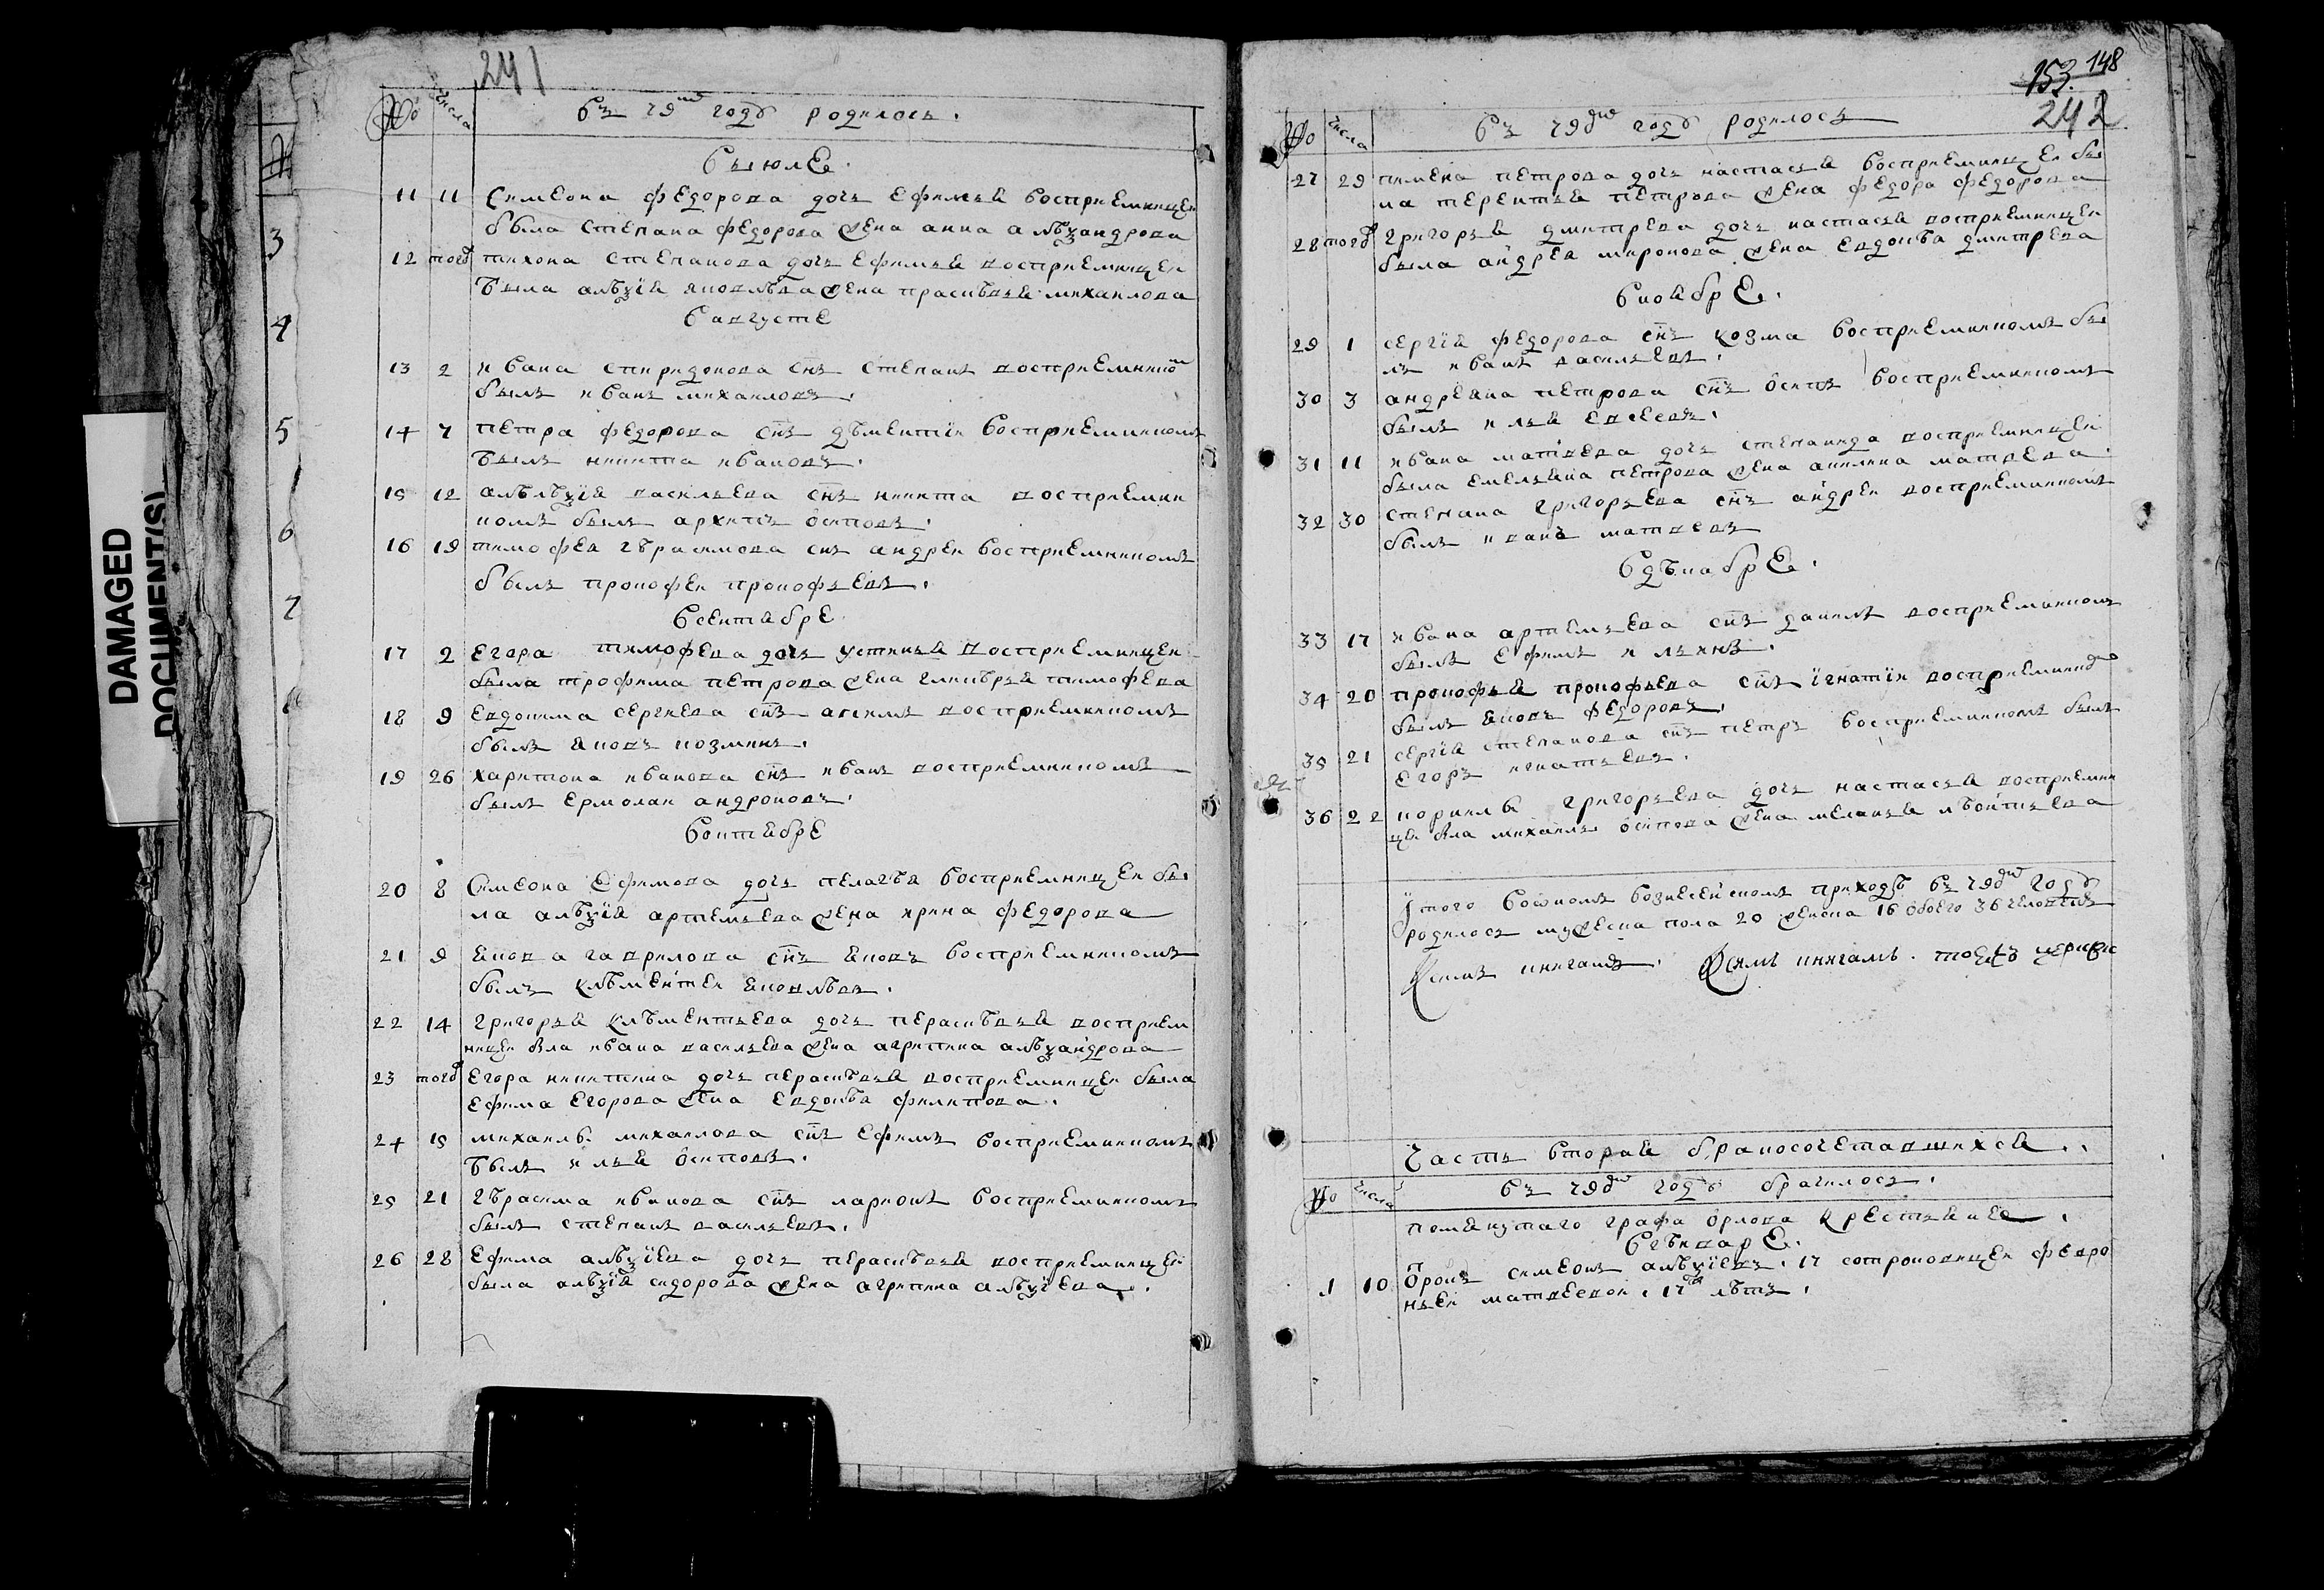 241
№ Числа Въ 79м годѣ родилось.
Въ июле.
11 11 Симеона федорова дочь ефимья восприемницеи
была степана федорова жена анна алѣѯандрова
12 тогож тихона степанова дочь ефимья восприемницеи
была алѣѯїя яковлѣва жена прасковья михаилова
В августе
13 2 ивана спиридонова сн҃ъ степанъ восприемником
былъ иванъ михаиловъ.
14 7 петра федорова сн҃ъ дѣментїи восприемникомъ
былъ никита ивановъ.
15 12 алѣѯїя васильева сн҃ъ никита восприемни
комъ былъ архипъ осиповъ.
16 19 тимофея гѣрасимова снъ андреи восприемникомъ
былъ прокофеи прокофьевъ.
В сентябре
17 2 Егора тимофева дочь устинья восприемницеи
была трофима петрова жена гликѣрья тимофева
18 9 Евдокима сергиева сн҃ъ акимъ восприемникомъ
былъ яковъ козминъ.
19 26 харитона иванова сн҃ъ иванъ восприемникомъ
былъ ермолаи андроновъ.
В октябре
20 8 Симеона Ефимова дочь пелагѣя восприемницеи бы
ла алѣѯїя артемьева жена ирина федорова
21 9 якова гаврилова сн҃ъ яковъ восприемникомъ
былъ клѣментеи яковлѣвъ.
22 14 григорья клѣментьева дочь перасковья восприем
ницеи была ивана васильева жена агрипина алѣѯандрова
23 тогож Егора никитина дочь перасковья восприемницеи была
ефима егорова жена евдокѣя филипова.
24 15 михаила михаилова сн҃ъ ефимъ восприемникомъ
былъ илья осиповъ.
25 21 гѣрасима иванова сн҃ъ ларионъ восприемникомъ
былъ степанъ васильевъ.
26 28 Ефима алѣѯїева дочь перасковья восприемницеи
была алѣѯїя сидорова жена агрипина алѣѯїева.
153. 148
242
№ числа Въ 79м годѣ родилось
27 29 пимена петрова дочь настасья восприемницеи бы
ла терентья петрова жена федора федорова
28 тогож григорья дмитрева дочь настасья восприемницеи
была андрея миронова жена евдокѣя дмитрева
В ноябре.
29 1 сергїя федорова сн҃ъ козма восприемникомъ бы
лъ иванъ васильевъ.
30 3 андреяна петрова сн҃ъ осипъ восприемникомъ
былъ илья евсеевъ.
31 11 ивана матвева дочь степанида восприемницеи
была емельяна петрова жена акилина матвева.
32 30 степана григорьева сн҃ъ андреи восприемникомъ
былъ иванъ матвеевъ
В дѣкабре.
33 17 ивана артемьева сн҃ъ данилъ восприемникомъ
былъ ефимъ ильинъ.
34 20 прокофья прокофьева сн҃ъ їгнатїи восприемником
былъ яковъ федоровъ.
35 21 сергїя степанова сн҃ъ петръ восприемникомъ былъ
егоръ игнатьевъ.
36 22 корнила григорьева дочь настасья восприемни
цеи была михаила осипова жена меланья лѣонтьева
Итого во ономъ вознесенскомъ приходѣ въ 79м годѣ
родилось мужеска пола 20 женска 16 обоего 36 человекъ
Ксимъ книгамъ. Ксимъ книгамъ.
Часть вторая браносочетавшихся.
№ числа Въ 79м годѣ брачилось.
помянутаго графа орлова крестьяне.
В гѣнваре.
1 10 Отрокъ симеонъ алѣѯїевъ. 17 сотроковицеи февро
ньеи матвеевои. 17 лѣтъ.
DAMAGED
DOCUMENT(S)
3
4
5
6
7